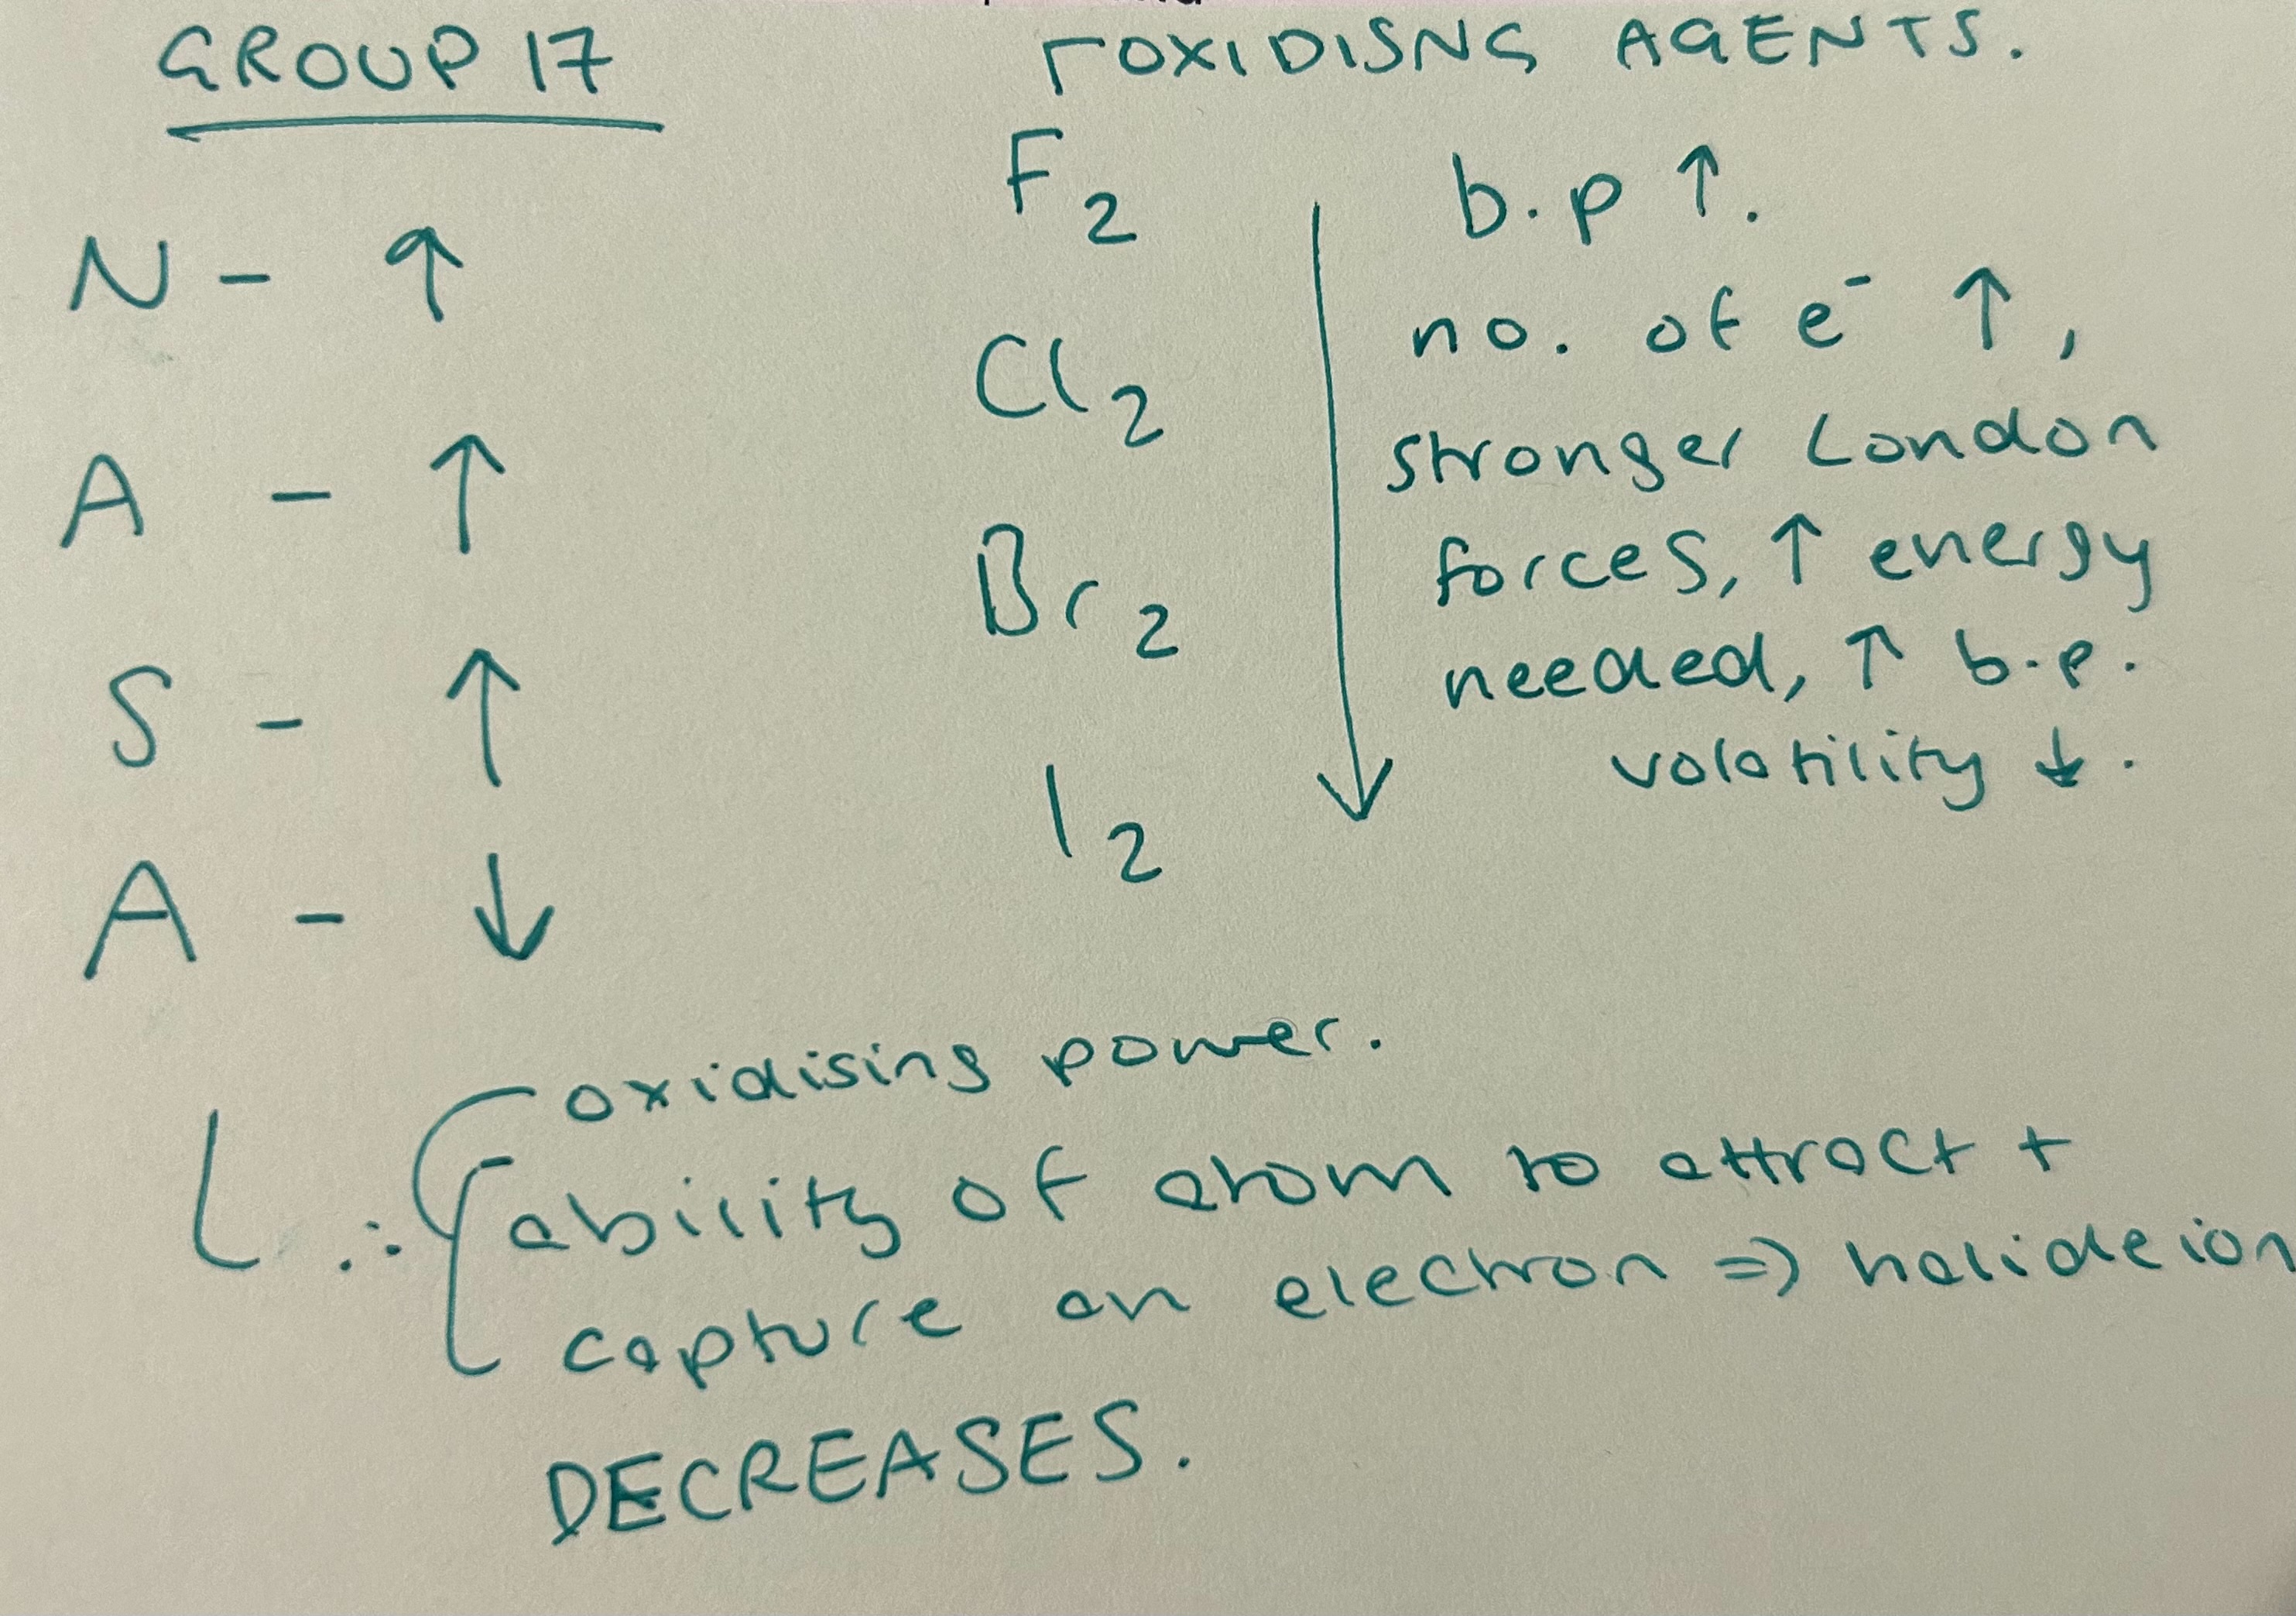 GROUP 17
N - ↑
A - ↑
S - ↑
A - ↓
OXIDISNG AGENTS.
F₂
Cl₂
Br₂
I₂
b.p ↑.
no. of e⁻ ↑,
stronger London
forces, ↑ energy
needed, ↑ b.p.
volatility ↓.
oxidising power.
∴ ability of atom to attract +
capture an electron => halide ion
DECREASES.